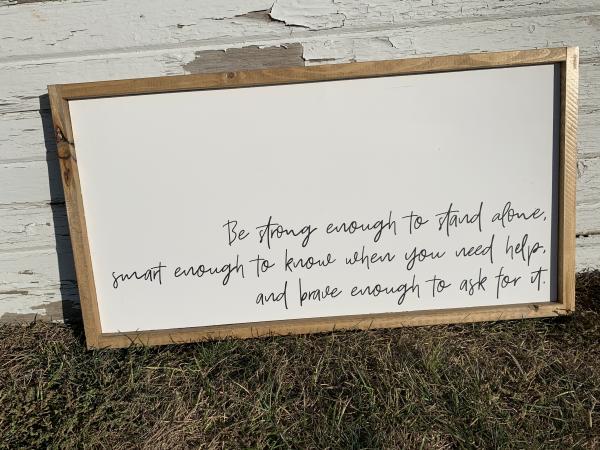 Be strong enough to stand alone,
smart enough to know when you need help,
and brave enough to ask for it.